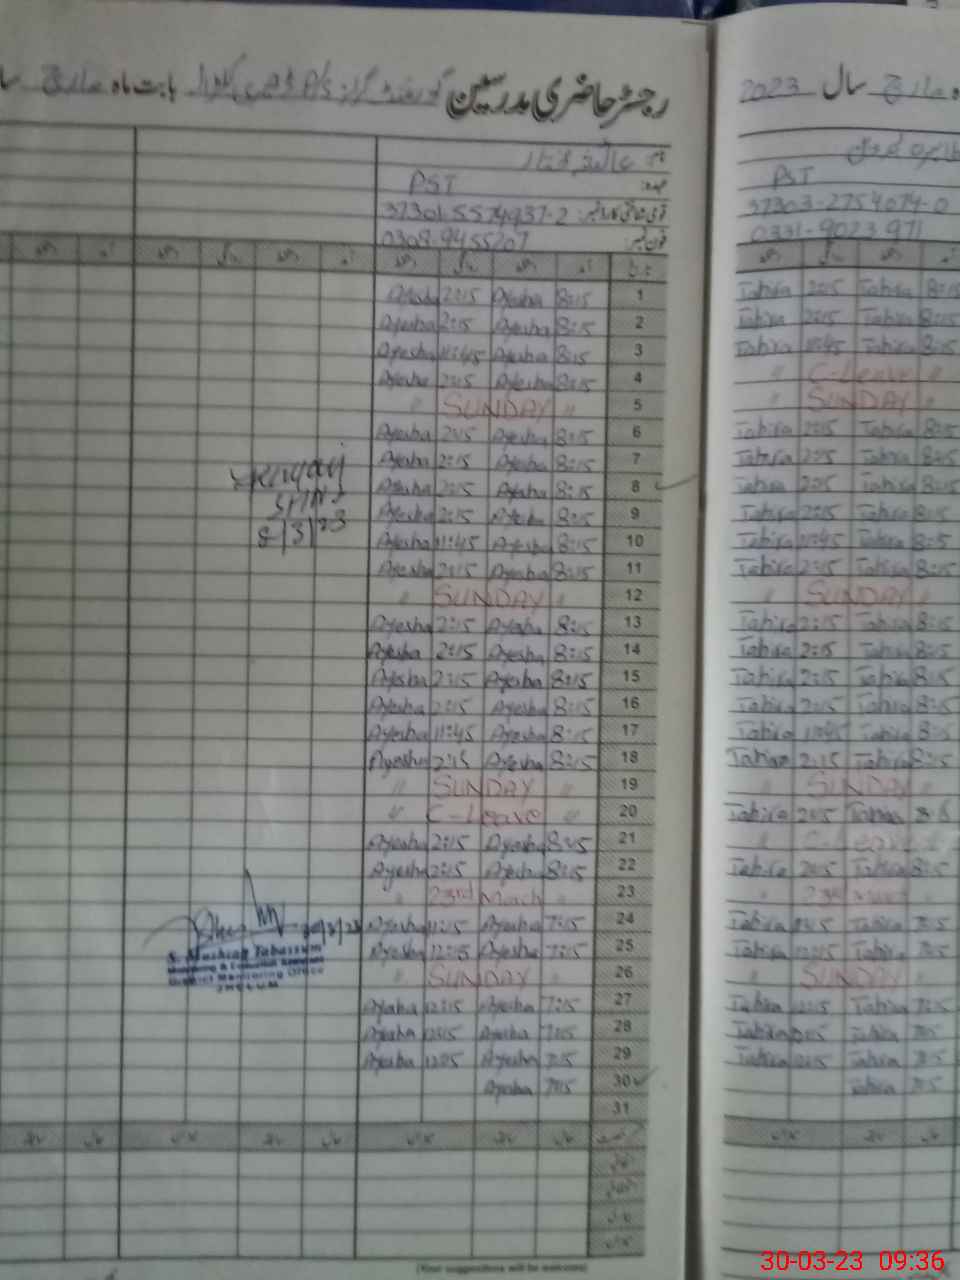 رجسٹر حاضری مدرسین گورنمنٹ گرلز P/S بابت ماہ مارچ
سال 2023
نام: عائشہ
عہدہ: PST
قومی شناختی کارڈ نمبر: 37301-5574937-2
فون نمبر: 0308-9455207
PST
37303-2754074-0
0331-9023971
Ayesha 2:15 Ayesha 8:15 1 Tahira 2:15 Tahira 8:15
Ayesha 2:15 Ayesha 8:15 2 Tahira 2:15 Tahira 8:15
Ayesha 11:45 Ayesha 8:15 3 Tahira 11:45 Tahira 8:15
Ayesha 2:15 Ayesha 8:15 4 " C-Leave "
" SUNDAY " 5 " SUNDAY "
Ayesha 2:15 Ayesha 8:15 6 Tahira 2:15 Tahira 8:15
Ayesha 2:15 Ayesha 8:15 7 Tahira 2:15 Tahira 8:15
Ayesha 2:15 Ayesha 8:15 8 Tahira 2:15 Tahira 8:15
Ayesha 2:15 Ayesha 8:15 9 Tahira 2:15 Tahira 8:15
8/3/23
Ayesha 11:45 Ayesha 8:15 10 Tahira 11:45 Tahira 8:15
Ayesha 2:15 Ayesha 8:15 11 Tahira 2:15 Tahira 8:15
" SUNDAY " 12 " SUNDAY "
Ayesha 2:15 Ayesha 8:15 13 Tahira 2:15 Tahira 8:15
Ayesha 2:15 Ayesha 8:15 14 Tahira 2:15 Tahira 8:15
Ayesha 2:15 Ayesha 8:15 15 Tahira 2:15 Tahira 8:15
Ayesha 2:15 Ayesha 8:15 16 Tahira 2:15 Tahira 8:15
Ayesha 11:45 Ayesha 8:15 17 Tahira 11:45 Tahira 8:15
Ayesha 2:15 Ayesha 8:15 18 Tahira 2:15 Tahira 8:15
" SUNDAY " 19 " SUNDAY "
" C-Leave " 20 Tahira 2:15 Tahira
Ayesha 2:15 Ayesha 8:15 21 " C-Leave "
Ayesha 2:15 Ayesha 8:15 22 Tahira 2:15 Tahira 8:15
" 23rd March " 23 " 23rd March
Ayesha 11:15 Ayesha 7:15 24 Tahira Tahira 7:15
Ayesha 12:15 Ayesha 7:15 25 Tahira 12:15 Tahira 7:15
S. Mushtaq Tabassum
Monitoring & Evaluation Assistant
District Monitoring Office
JHELUM
" SUNDAY " 26 " SUNDAY "
Ayesha 12:15 Ayesha 7:15 27 Tahira 12:15 Tahira 7:15
Ayesha 12:15 Ayesha 7:15 28 Tahira 12:15 Tahira 7:15
Ayesha 12:15 Ayesha 7:15 29 Tahira 12:15 Tahira 7:15
Ayesha 7:15 30 Tahira 7:15
31
(Your suggestions will be welcomed)
30-03-23 09:36